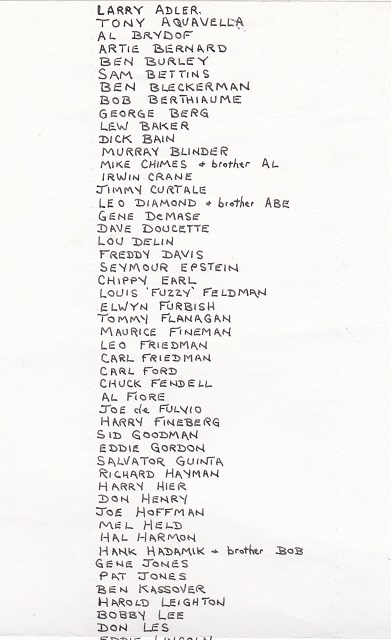 LARRY ADLER.
TONY AQUAVELLA
AL BRYDOF
ARTIE BERNARD
BEN BURLEY
SAM BETTINS
BEN BLECKERMAN
BOB BERTHIAUME
GEORGE BERG
LEW BAKER
DICK BAIN
MURRAY BLINDER
MIKE CHIMES + brother AL
IRWIN CRANE
JIMMY CURTALE
LEO DIAMOND + brother ABE
GENE DeMASE
DAVE DOUCETTE
LOU DELIN
FREDDY DAVIS
SEYMOUR EPSTEIN
CHIPPY EARL
LOUIS 'FUZZY' FELDMAN
ELWYN FURBISH
TOMMY FLANAGAN
MAURICE FINEMAN
LEO FRIEDMAN
CARL FRIEDMAN
CARL FORD
CHUCK FENDELL
AL FIORE
JOE de FULVIO
HARRY FINEBERG
SID GOODMAN
EDDIE GORDON
SALVATOR GUINTA
RICHARD HAYMAN
HARRY HIER
DON HENRY
JOE HOFFMAN
MEL HELD
HAL HARMON
HANK HADAMIK + brother BOB
GENE JONES
PAT JONES
BEN KASSOVER
HAROLD LEIGHTON
BOBBY LEE
DON LES
EDDIE LINCOLN